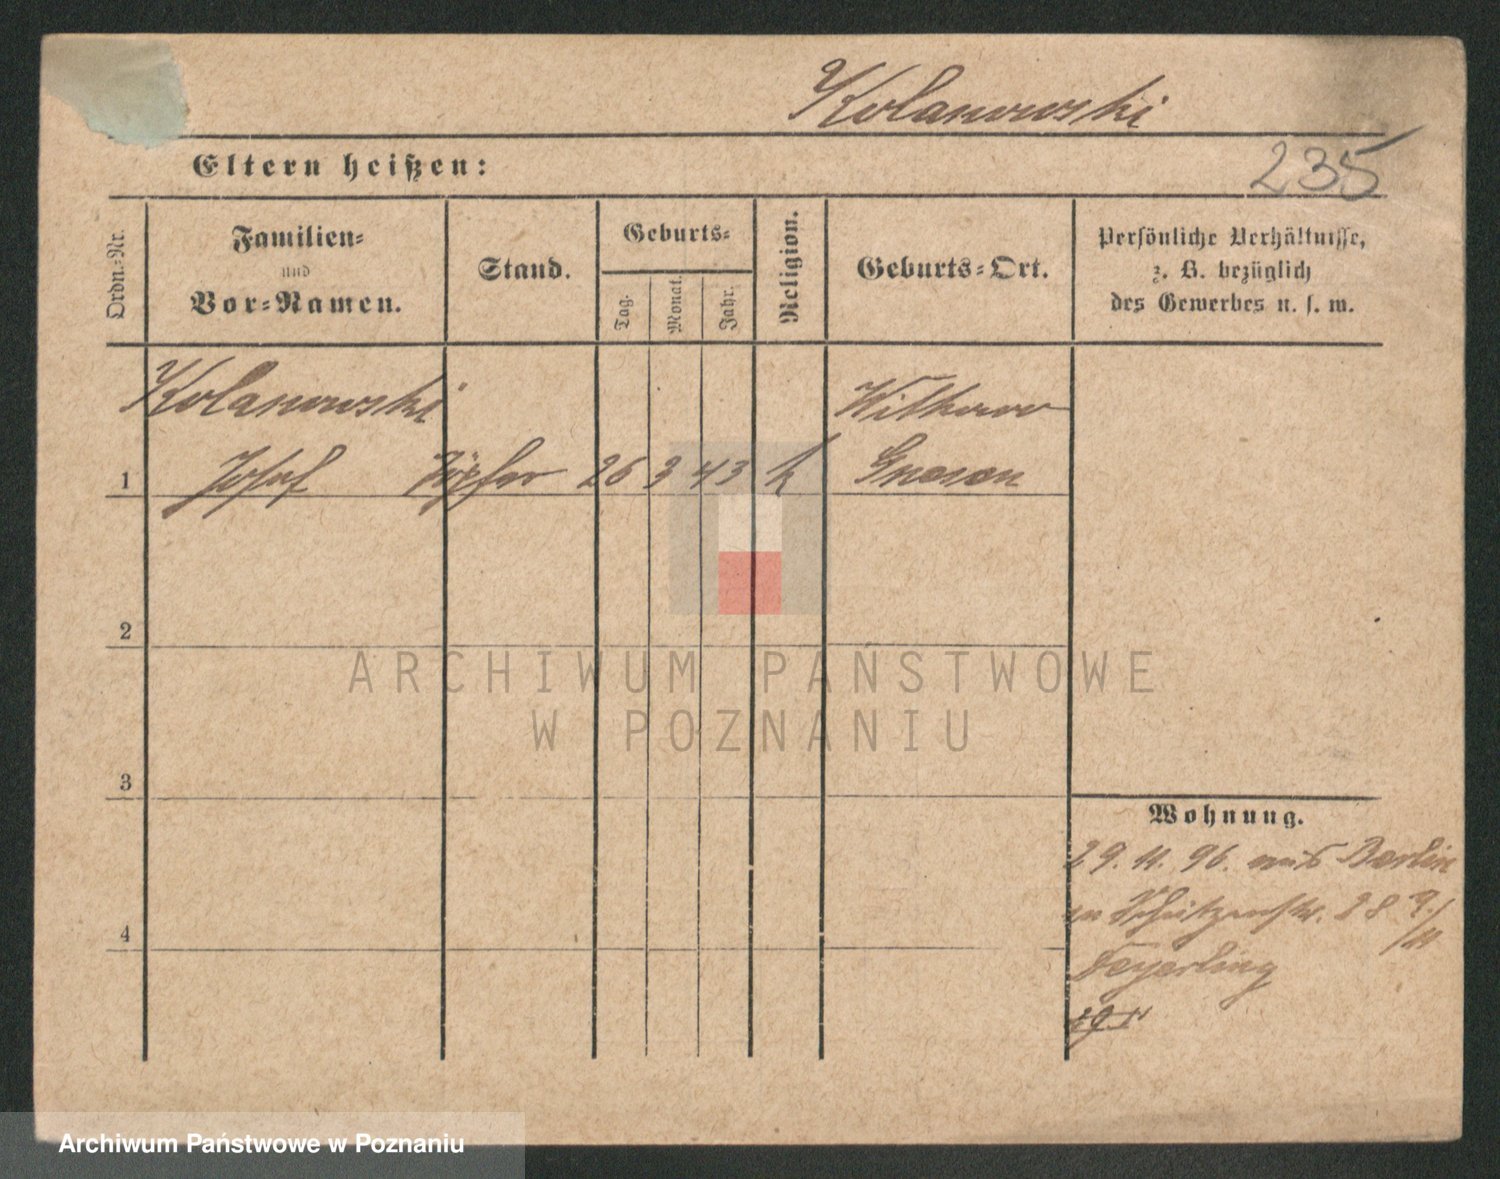 Kolanowski
235
Eltern heißen:
Ordn.-Nr.
Familien-
und
Vor-Namen.
Stand.
Geburts-
Tag.
Monat.
Jahr.
Religion.
Geburts-Ort.
Persönliche Verhältnisse,
z. B. bezüglich
des Gewerbes u. s. w.
Kolanowski
Witkowo
1 Josef Töpfer 26 3 43 k Gnesen
2
3
4
Wohnung.
29. 11. 96. aus Berlin
Schützenstr. 28 9./11
Feyerling
ARCHIWUM PAŃSTWOWE
W POZNANIU
Archiwum Państwowe w Poznaniu